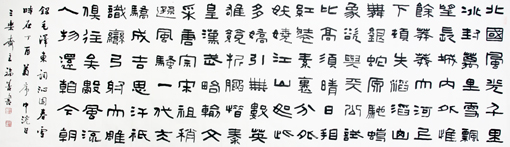 北國風光千里
冰封萬里雪飄
望長城內外惟
餘莽莽大河上
下頓失滔滔山
舞銀蛇原馳蠟
象欲與天公試
比高須晴日看
紅裝素裹分外
妖嬈江山如此
多嬌引無數英
雄競折腰惜秦
皇漢武略輸文
采唐宗宋祖稍
遜風騷一代天
驕成吉思汗祇
識彎弓射大雕
俱往矣數風流
人物還看今朝
錄毛澤東詞沁園春雪
時在丁酉